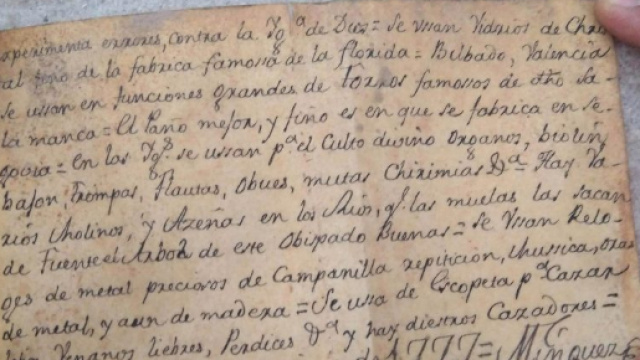 experimenta errores, contra la Yg.ª de Dios = Se ussan Vidrios de
al fino de la fabrica famosa de la florida = Bilbado, Valencia
Se ussan en funciones grandes de torros famosos de
la manca = El Paño mejor, y fino es en que se fabrica en Se-
govia = en las Yg.s se ussan p.ª el Culto divino Organos, biolin
bajon, trompas, flautas, Obues, mutas Chirimias &ª = Hay Va-
rios Molinos, y Azeñas en los Rios, q.e las muelas las sacan
de Fuente el Arbol de este Obispado Buenas = Se Ussan Relo-
ges de metal preciosos de Campanilla repiticion, Mussica,
de metal, y aun de madera = Se ussa de Escopeta p.ª Cazar
Venanos liebres, Perdices &ª y hay diestros Cazadores =
de 1777 = Minguez